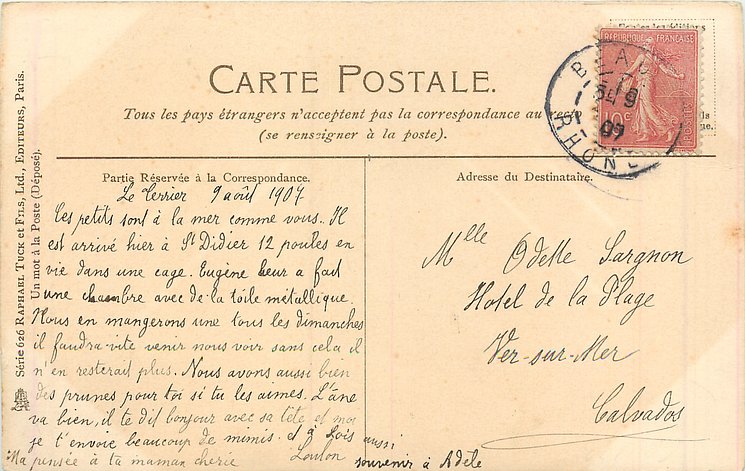 CARTE POSTALE.
Tous les pays étrangers n'acceptent pas la correspondance au
(se renseigner à la poste).
RÉPUBLIQUE FRANÇAISE
10c
RHONE
Série 626 RAPHAEL TUCK ET FILS, LTD., EDITEURS, Paris.
Un mot à la Poste (Déposé).
Partie Réservée à la Correspondance.
Le Cerrier 9 août 1907
Les petits sont à la mer comme vous. Il
est arrivé hier à St Didier 12 poules en
vie dans une cage. Eugène leur a fait
une chambre avec de la toile métallique.
Nous en mangerons une tous les dimanches
il faudra vite venir nous voir sans cela il
n'en resterait plus. Nous avons aussi bien
des prunes pour toi si tu les aimes. L'âne
va bien, il te dit bonjour avec sa tête et moi
je t'envoie beaucoup de mimis. et à Loïs aussi
Ma pensée à ta maman chérie Loulou
souvenir à Adèle
Adresse du Destinataire.
Mlle Odette Sargnon
Hotel de la Plage
Ver-sur-Mer
Calvados